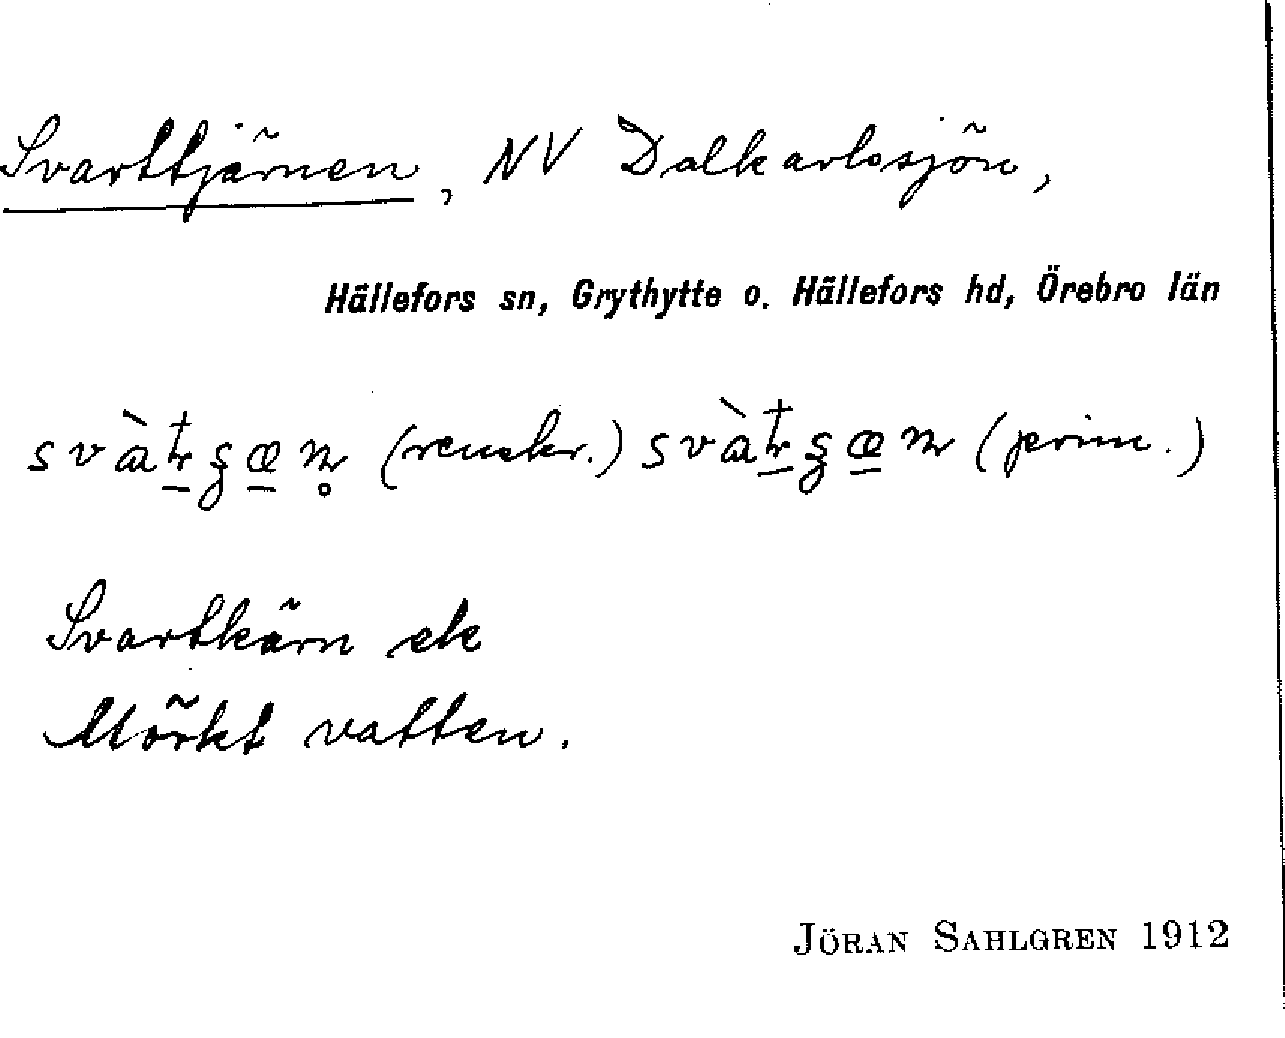 Svarttjärnen, NV Dalkarlssjön,
Hällefors sn, Grythytte o. Hällefors hd, Örebro län
(renskr.) (prim.)
Svartkärn ek
Mörkt vatten.
JÖRAN SAHLGREN 1912